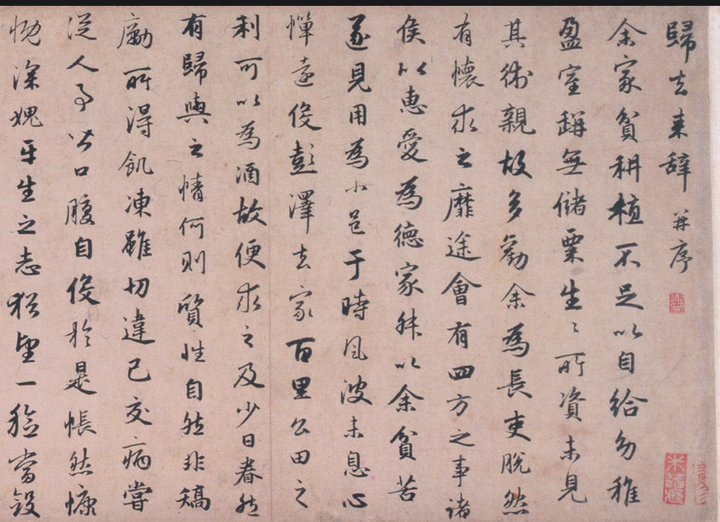 歸去来辞并序
余家貧耕植不足以自給幼稚
盈室缾無儲粟生〻所資未見
其術親故多勸余為長吏脫然
有懷求之靡途會有四方之事諸
侯以惠愛為德家叔以余貧苦
遂見用為小邑于時風波未息心
憚遠役彭澤去家百里公田之
利可以為酒故便求之及少日眷然
有歸與之情何則質性自然非矯
勵所得飢凍雖切違己交病嘗
從人事皆口腹自役於是悵然慷
慨深媿平生之志猶望一稔當斂